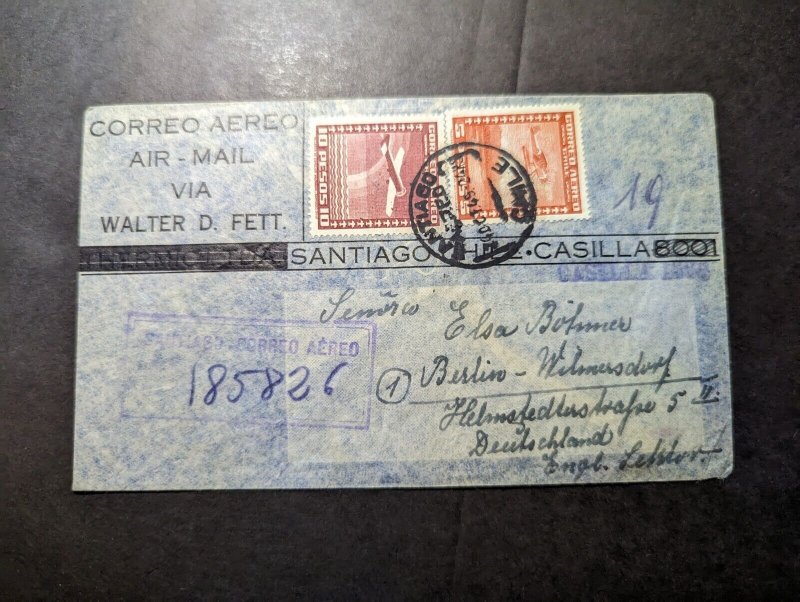 CORREO AEREO
AIR-MAIL
VIA
WALTER D. FETT.
10 PESOS 10
CORREO AEREO
5
CORREO AEREO
SANTIAGO
CHILE
19
THERMIC LTDA. SANTIAGO CHILE • CASILLA 6001
CASILLA
SANTIAGO-CORREO AÉREO
185826
Señora Elsa Böhmer
1 Berlin-Wilmersdorf
Helmstedterstraße 5 II
Deutschland
Engl. Sektor.